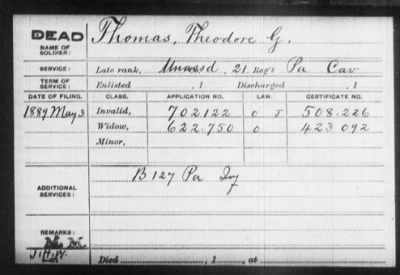 DEAD
NAME OF SOLDIER: Thomas, Theodore G.
SERVICE: Late rank, 21 Reg't Pa Cav
TERM OF SERVICE: Enlisted , 1 Discharged , 1
DATE OF FILING. CLASS. APPLICATION NO. LAW. CERTIFICATE NO.
1889 May 3. Invalid, 702122 O J 508.226
Widow, 622.750 O 423092
Minor,
ADDITIONAL SERVICES: B 127 Pa Inf
REMARKS:
Died , 1 , at